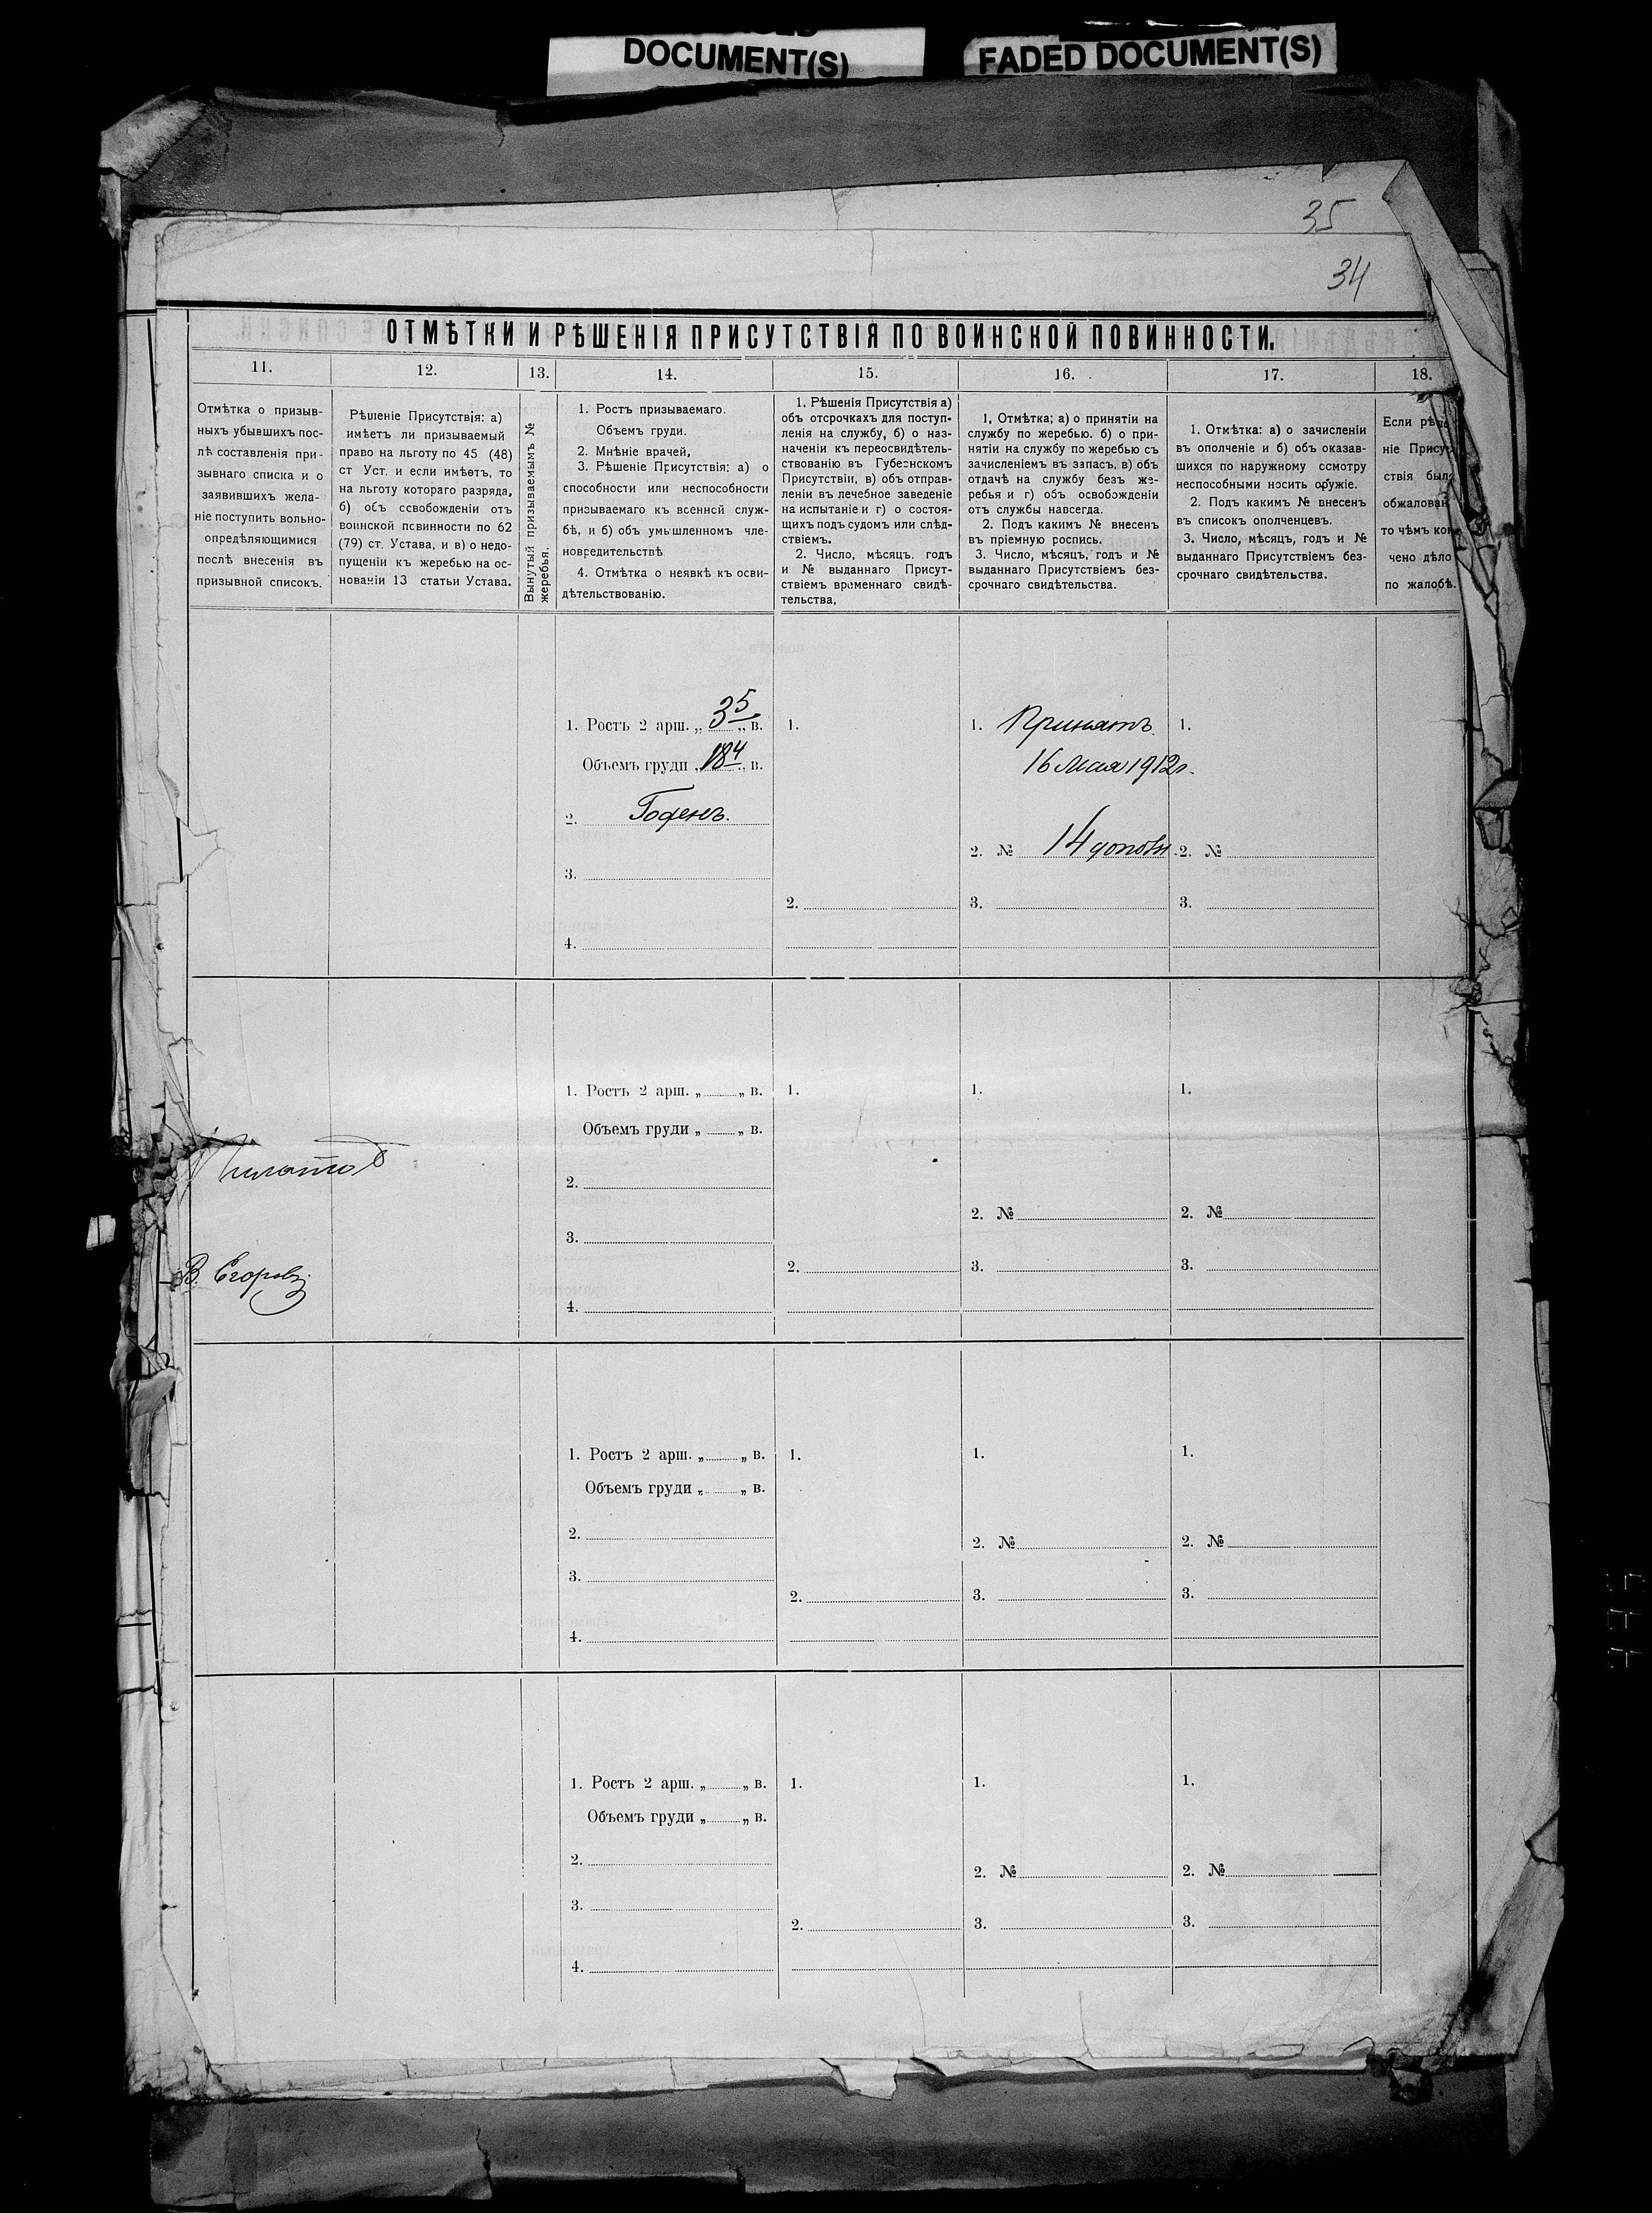 DOCUMENT(S)
FADED DOCUMENT(S)
35
34
ОТМѢТКИ И РѢШЕНІЯ ПРИСУТСТВІЯ ПО ВОИНСКОЙ ПОВИННОСТИ.
11.
12.
13.
14.
15.
16.
17.
18.
Отмѣтка о призыв-
ныхъ убывшихъ пос-
лѣ составленія при-
зывнаго списка и о
заявившихъ жела-
ніе поступить вольно-
опредѣляющимися
послѣ внесенія въ
призывной списокъ.
Рѣшеніе Присутствія: а)
имѣетъ ли призываемый
право на льготу по 45 (48)
ст Уст. и если имѣетъ, то
на льготу котораго разряда,
б) объ освобожденіи отъ
воинской повинности по 62
(79) ст. Устава, и в) о недо-
пущеніи къ жеребью на ос-
нованіи 13 статьи Устава.
Вынутый призываемымъ №
жеребья.
1. Ростъ призываемаго.
Объемъ груди.
2. Мнѣніе врачей,
3. Рѣшеніе Присутствія: а) о
способности или неспособности
призываемаго къ военной служ-
бѣ, и б) объ умышленномъ чле-
новредительствѣ
4. Отмѣтка о неявкѣ къ осви-
дѣтельствованію.
1. Рѣшенія Присутствія а)
объ отсрочкахъ для поступ-
ленія на службу, б) о наз-
наченіи къ переосвидѣтель-
ствованію въ Губернскомъ
Присутствіи, в) объ отправ-
леніи въ лечебное заведеніе
на испытаніе и г) о состоя-
щихъ подъ судомъ или слѣд-
ствіемъ.
2. Число, мѣсяцъ. годъ
и № выданнаго Присут-
ствіемъ временнаго свидѣ-
тельства,
1, Отмѣтка; а) о принятіи на
службу по жеребью. б) о при-
нятіи на службу по жеребью съ
зачисленіемъ въ запасъ, в) объ
отдачѣ на службу безъ же-
ребья и г) объ освобожденіи
отъ службы навсегда.
2. Подъ какимъ № внесенъ
въ пріемную роспись.
3. Число, мѣсяцъ, годъ и №
выданнаго Присутствіемъ без-
срочнаго свидѣтельства.
1. Отмѣтка: а) о зачисленіи
въ ополченіе и б) объ оказав-
шихся по наружному осмотру
неспособными носить оружіе.
2. Подъ какимъ № внесенъ
въ списокъ ополченцевъ.
3. Число, мѣсяцъ, годъ и №
выданнаго Присутствіемъ без-
срочнаго свидѣтельства.
Если рѣше
ніе Присут
ствія было
обжалован
то чѣмъ кон
чено дѣло
по жалобѣ.
1. Ростъ 2 арш. „ 3 5 „ в.
Объемъ груди „ 18 4 „ в.
2. Годенъ.
3.
4.
1.
2.
1. Принятъ
16 Мая 1912 г.
2. № 14
3.
1.
2. №
3.
1. Ростъ 2 арш. „ „ в.
Объемъ груди „ „ в.
2.
3.
4.
1.
2.
1.
2. №
3.
1.
2. №
3.
В. Егоровъ
1. Ростъ 2 арш. „ „ в.
Объемъ груди „ „ в.
2.
3.
4.
1.
2.
1.
2. №
3.
1.
2. №
3.
1. Ростъ 2 арш. „ „ в.
Объемъ груди „ „ в.
2.
3.
4.
1.
2.
1.
2. №
3.
1.
2. №
3.